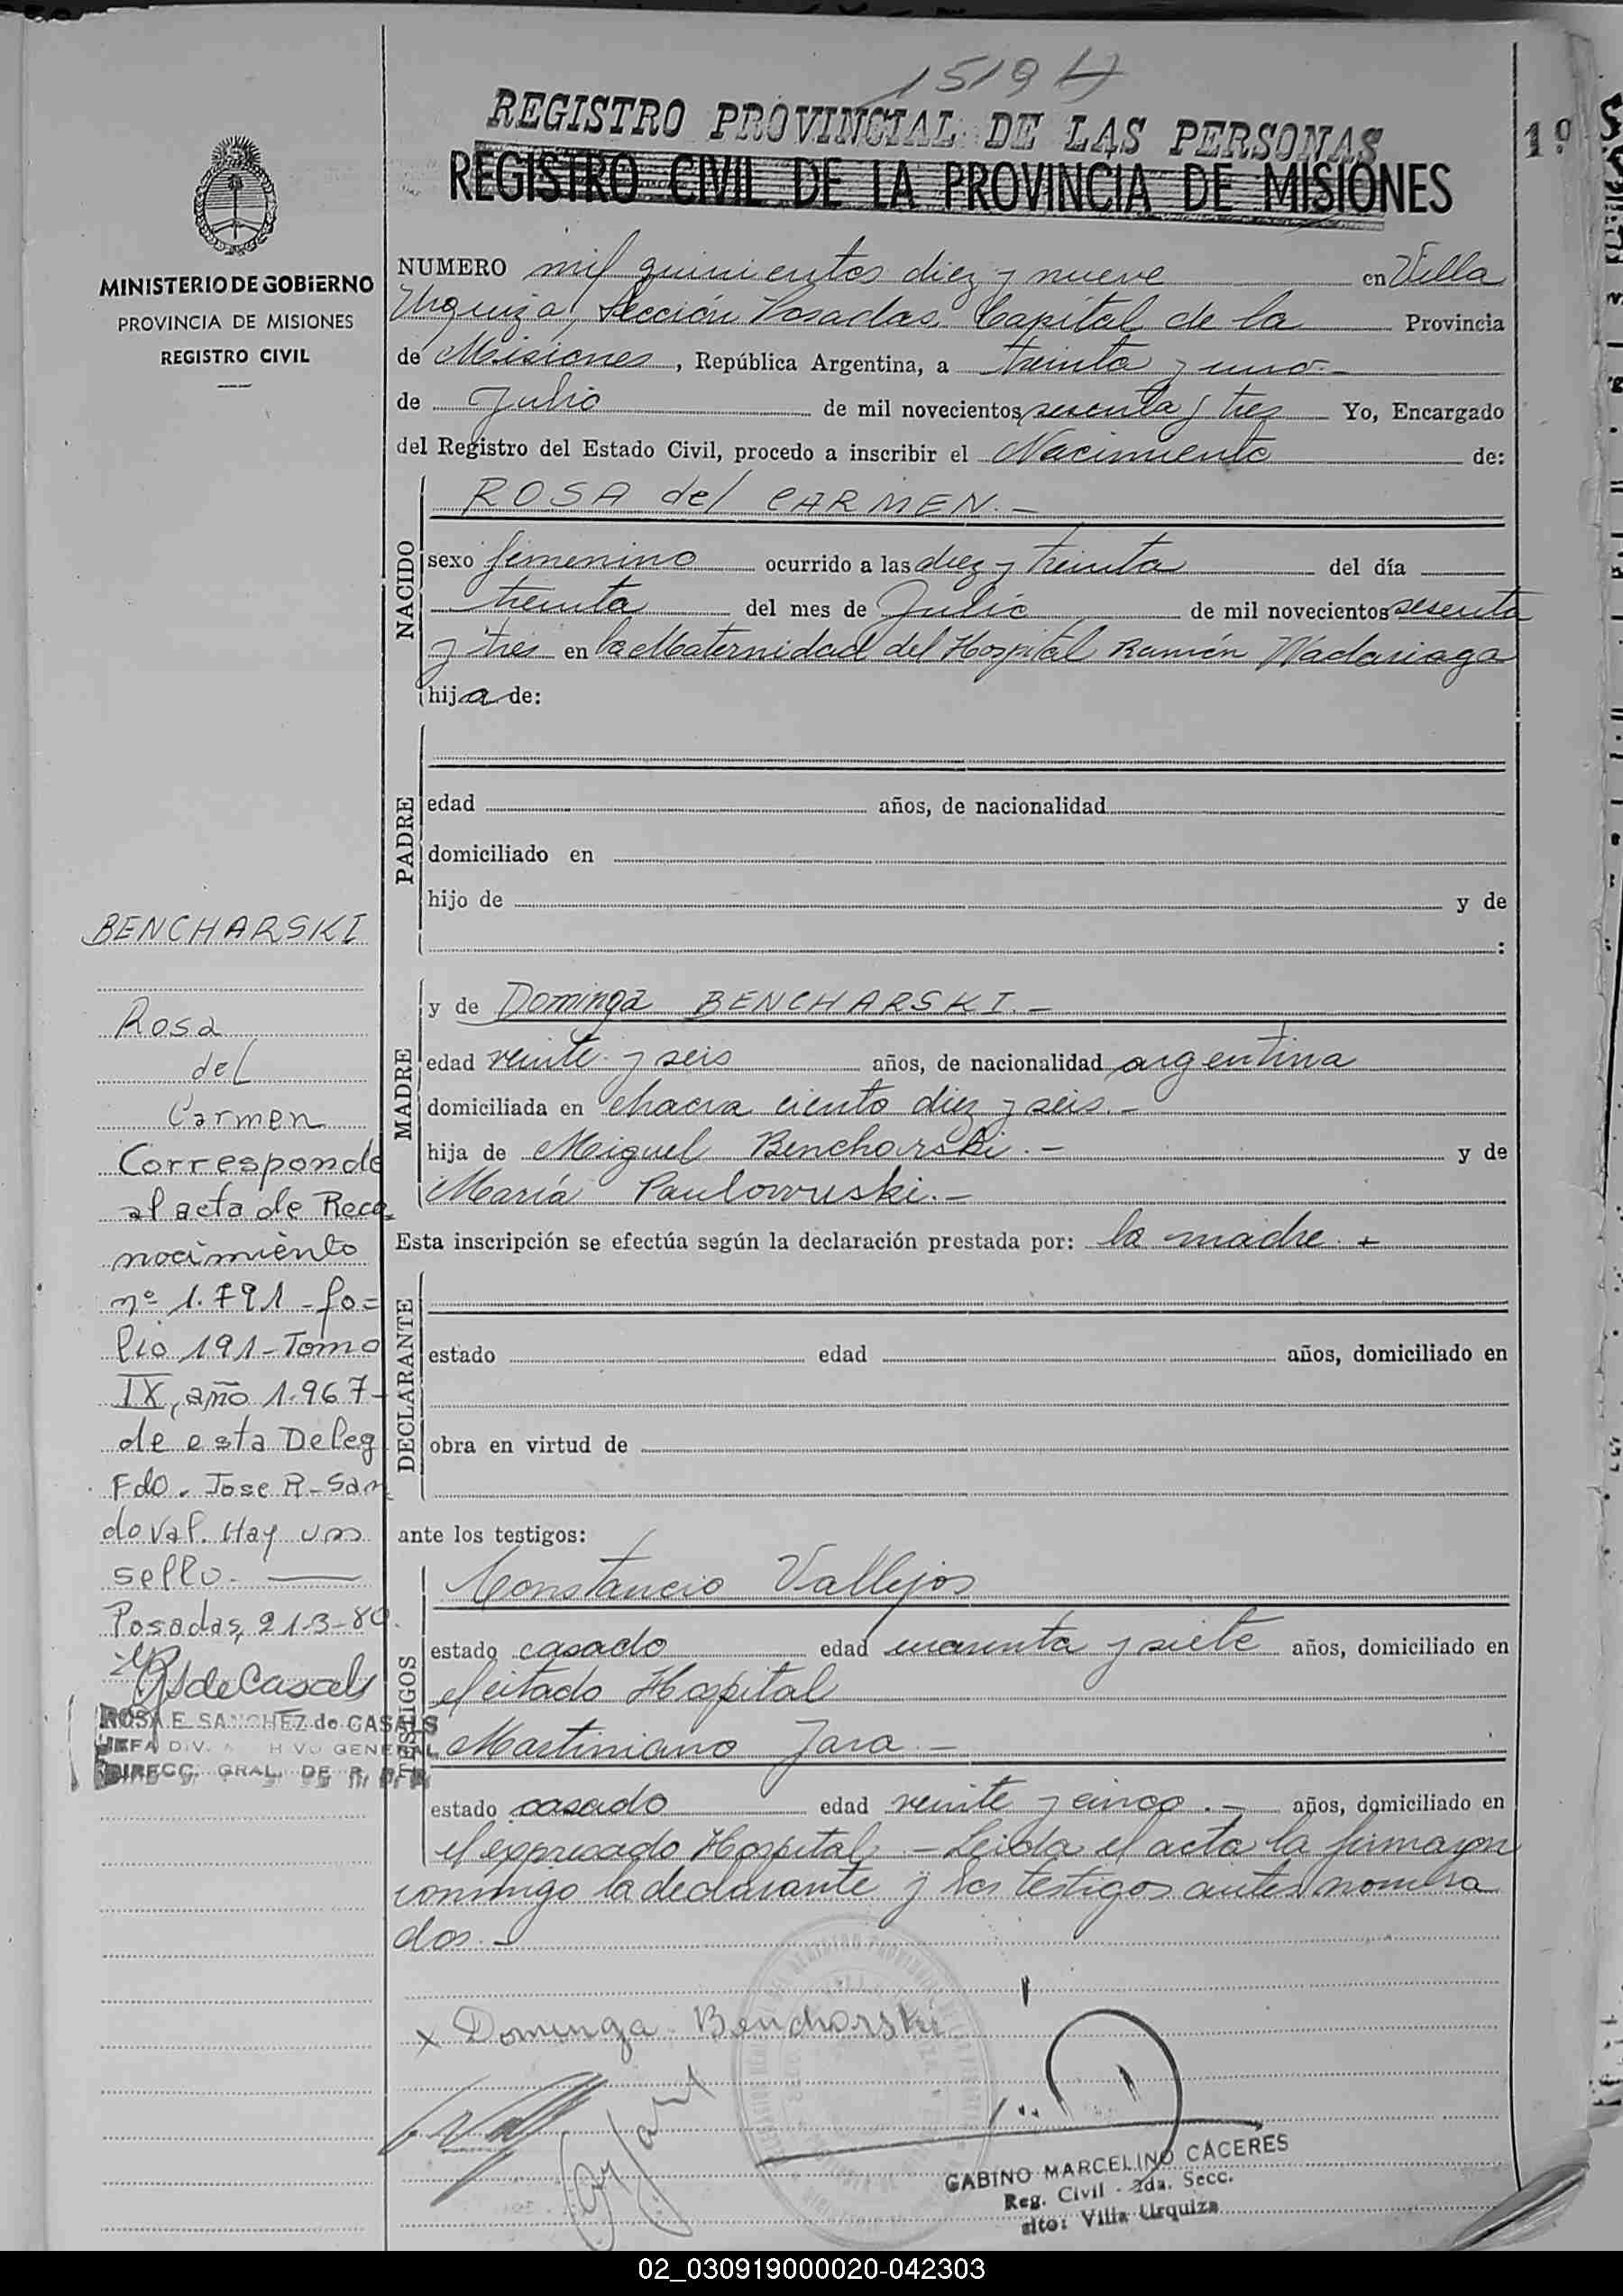 1519
REGISTRO PROVINCIAL DE LAS PERSONAS
REGISTRO CIVIL DE LA PROVINCIA DE MISIONES
1º
MINISTERIO DE GOBIERNO
PROVINCIA DE MISIONES
REGISTRO CIVIL
NUMERO mil quinientos diez y nueve en Villa
Urquiza, Sección Posadas, Capital de la Provincia
de Misiones, República Argentina, a treinta y uno.-
de Julio de mil novecientos sesenta y tres Yo, Encargado
del Registro del Estado Civil, procedo a inscribir el Nacimiento de:
NACIDO
ROSA del CARMEN.-
sexo femenino ocurrido a las diez y treinta del día
treinta del mes de Julio de mil novecientos sesenta
y tres en la Maternidad del Hospital Ramón Madariaga
hija de:
PADRE
edad años, de nacionalidad
domiciliado en
hijo de y de
:
MADRE
y de Dominga BENCHARSKI.-
edad veinte y seis años, de nacionalidad argentina
domiciliada en chacra ciento diez y seis.-
hija de Miguel Bencharski.- y de
María Paulowuski.-
Esta inscripción se efectúa según la declaración prestada por: la madre.
DECLARANTE
estado edad años, domiciliado en
obra en virtud de
ante los testigos:
TESTIGOS
Constancio Vallejos
estado casado edad cuarenta y siete años, domiciliado en
el citado Hospital
Martiniano Jara.-
estado casado edad veinte y cinco.- años, domiciliado en
el expresado Hospital.- Leida el acta la firmaron
conmigo la declarante y los testigos antes nombra
dos.-
x Dominga Bencharski
GABINO MARCELINO CACERES
Reg. Civil - 2da. Secc.
sito: Villa Urquiza
BENCHARSKI
Rosa
del
Carmen
Corresponde
al acta de Reco
nocimiento
nº 1.791 - fo=
lio 191 - Tomo
IX, año 1.967-
de esta Deleg
Fdo. Jose R. San
doval. Hay un
sello.
Posadas, 21-3-80.
RSdeCasals
ROSA E. SANCHEZ de CASALS
JEFA DIV. ARCHIVO GENERAL
DIRECC. GRAL. DE R. P.
02_030919000020-042303